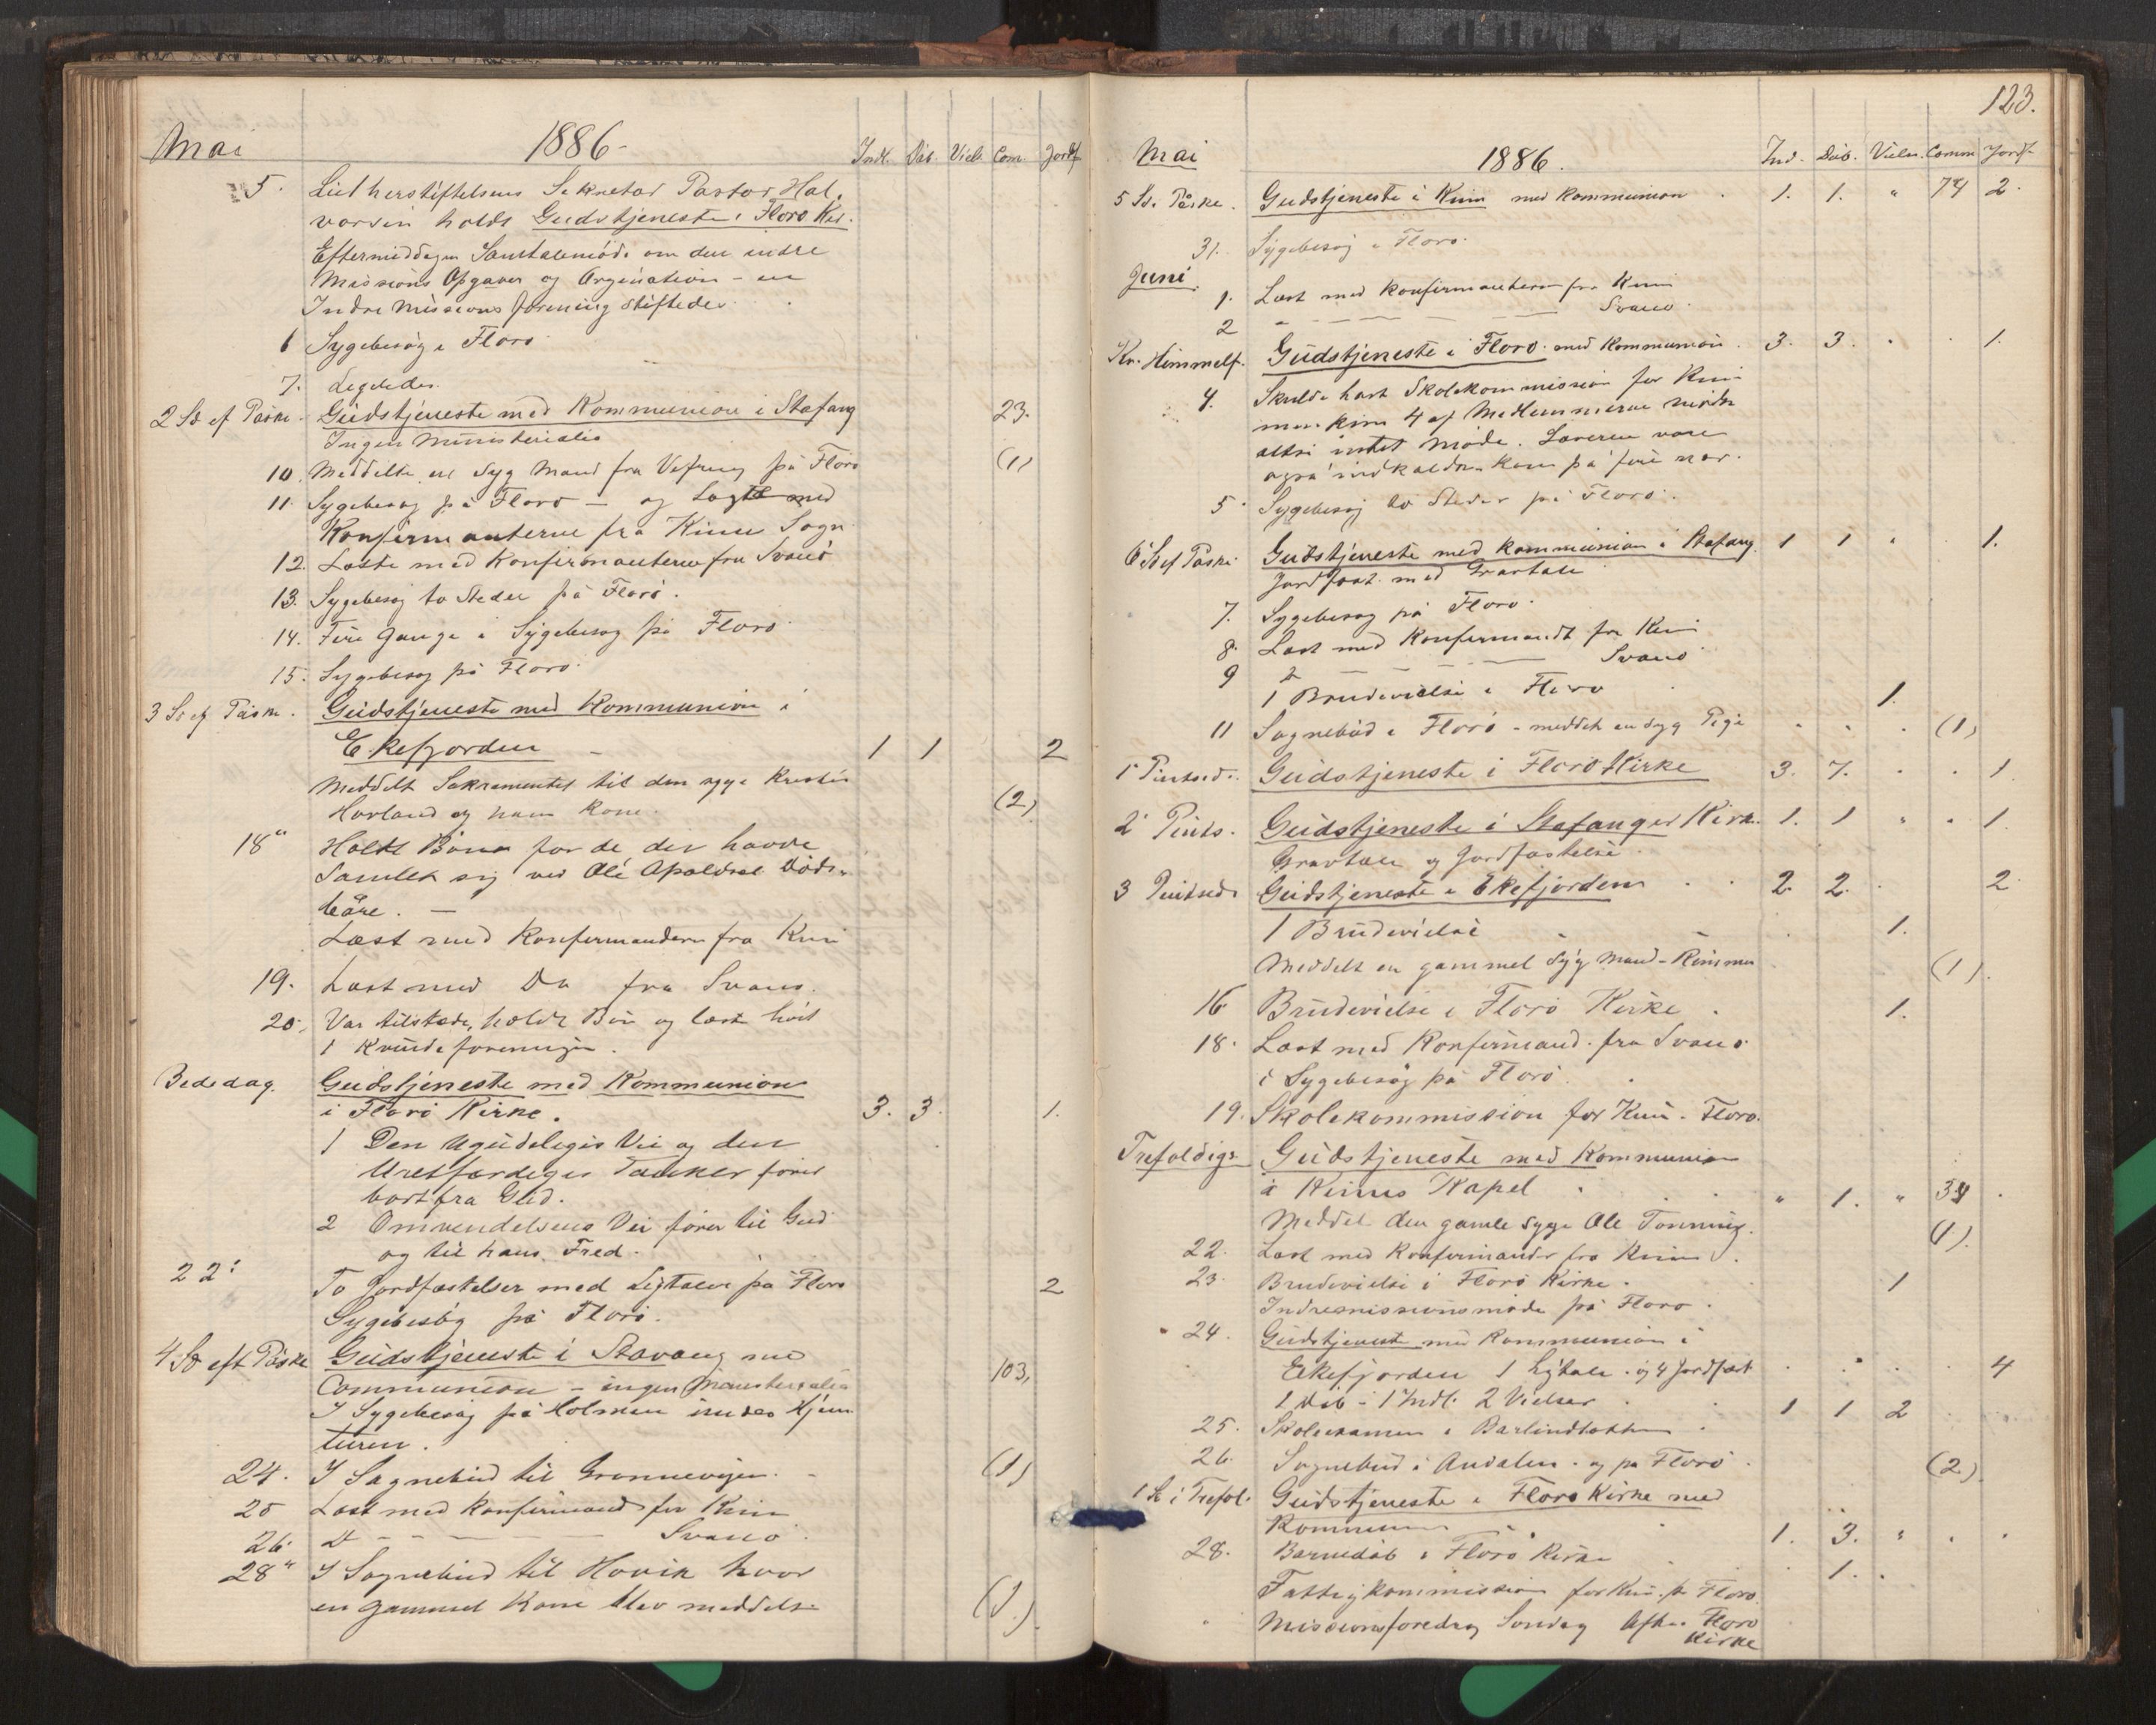 Mai 1886 Indl. Dåb. Vielr. Com. Jordf.
5. Lutherstiftelsens Sekretær Pastor Hal,
vorsen holdt Gudstjeneste i Florø Kir.
Eftermiddagen Samtalemøde om den indre
Missions Opgaver og Organisation - en
Indre Missions forening stiftedes.
6 Sygebesøg i Florø
7. Ligeledes.
2 Sd ef Påske. Gudstjeneste med Kommunion i Stafang 23.
Ingen Ministerialia
10. Meddelte en syg Mand fra Vefring på Florø (1)
11. Sygebesøg på Florø - og Lagte med
Konfirmanterne fra Kinn Sogn
12. Læste med Konfirmanterne fra Svanø
13. Sygebesøg to Steder på Florø.
14. Fire Gange i Sygebesøg på Florø
15. Sygebesøg på Florø.
3 Sd ef Påske. Gudstjeneste med Kommunion i
Ekefjorden - 1 1 2
Meddelt Sakramentet til den syge Kristen
Horland og hans Kone. (2)
18 Holdt Bønn for de der havde
samlet sig ved Ole Apaldset Døds-
båre. -
Læst med Konfirmandern fra Kinn
19. Læst med Do fra Svanø.
20. Var tilstede, holdt Bøn og læste høit
i Kvindeforeningen.
Bededag. Gudstjeneste med Kommunion
i Florø Kirke. 3. 3 1.
1 Den Ugudeliges Vei og den
Uretfærdiges Tanker fører
bort fra Gud.
2 Omvendelsens Vei fører til Gud
og til hans Fred.
22. To Jordfæstelser med Ligtaler på Florø 2
Sygebesøg på Florø.
4 Sd eft Påske Gudstjeneste i Stavang med
Communion - ingen Ministerialia 103,
I Sygebesøg på Holmen under Hjem
turen.
24. I Sognebud til Grønnevigen. - (1)
25 Læst med Konfirmand fra Kinn
26. D - - - Svanø
28 I Sognebud til Hovik hvor
en gammel Kone blev meddelt (1.)
123.
Mai 1886. Ind. Dåb. Vielsr. Comm Jordf.
5 Sd. Påske. Gudstjeneste i Kinn med Kommunion . 1. 1. " 74 2.
31. Sygebesøg i Florø.
Juni.
1. Læst med Konfirmantern fra Kinn
2 " - - - Svanø.
Kr. Himmelf. Gudstjeneste i Florø med Kommunion. 3. 3. . 1.
4. Skulde havt Skolekommission for Kinn
men kun 4 af Medlemmerne mødte
altså intet Møde. Lærerne vare
også indkaldte
5 Sygebesøg to Steder på Florø.
6 Sd ef Påske Gudstjeneste med Kommunion i Stafang. 1 1 " 1.
Jordfæst. med Gravtale
7. Sygebesøg på Florø.
8. Læst med Konfirmandt fra Kinn
9 D - - - Svanø
1 Brudevielse i Florø 1.
11 Sognebud i Florø - meddelt en syg Pige (1)
1 Pintsed. Gudstjeneste i Florø Kirke 3. 7. . . 1
2 Pints. Gudstjeneste i Stafanger Kirk. 1. 1 " . 1.
Gravtale og Jordfæstelse
3 Pintseds Gudstjeneste i Ekefjorden . . 2 2. . 2
1 Brudevielse 1.
Meddelt en gammel syg Mand - (1).
16 Brudevielse i Florø Kirke . 1.
18. Læst med Konfirmand. fra Svanø
i Sygebesøg på Florø.
19. Skolekommission for Kinn. Florø.
Trefoldigs Gudstjeneste med Kommunion
i Kinns Kapel . " 1. " 34 .
Meddel. den gamle syge Ole Tonning. (1).
22. Læst med Konfirmander fra Kinn.
23. Brudevielse i Florø Kirke. 1
Indremissionsmøde på Florø.
24. Gudstjeneste med Kommunion i
Eikefjorden 1 Ligtale. og 4 Jordfæst 4
1 Dåb - 1 Indl. 2 Vielser . 1 1 2
25. Skoleexamen i Barlindbotten
26. Sognebud i Andalen. og på Florø . (2).
1 S. i Trefol. Gudstjeneste i Florø Kirke med
Kommunion 1. 3. " . .
28. Barnedåb i Florø Kirke 1. .
Fattigkommission for Kinn. på Florø.
Missionsforedrag Søndag Aften Florø
Kirke